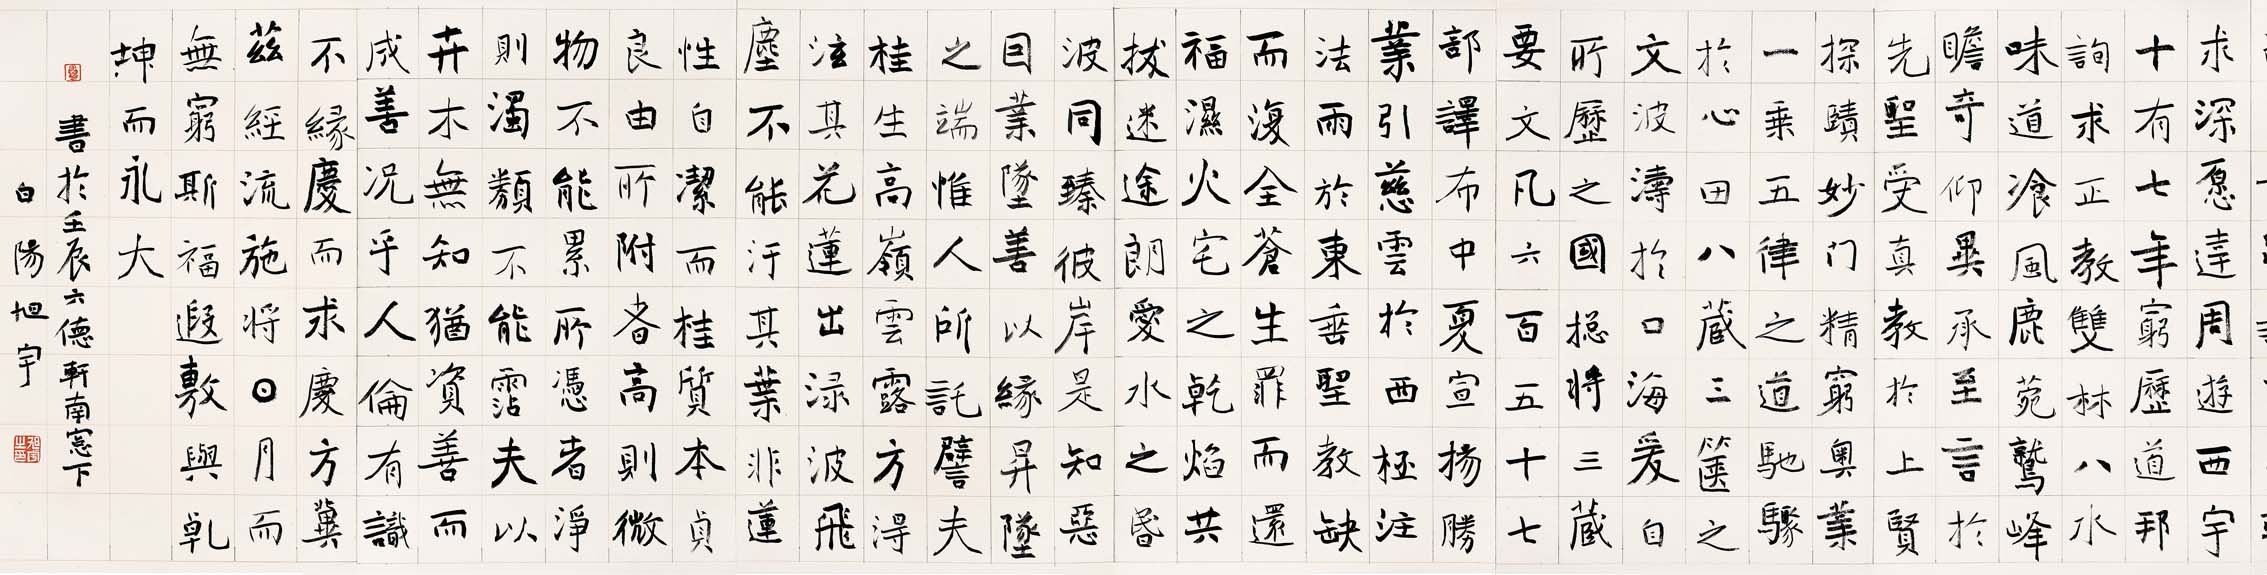 求深愿達周遊西宇
十有七年窮歷道邦
詢求正教雙林八水
味道飡風鹿菀鷲峰
瞻奇仰異承至言於
先聖受真教於上賢
探賾妙门精窮奧業
一乘五律之道馳驟
於心田八藏三篋之
文波濤於口海爰自
所歷之國捴將三藏
要文凡六百五十七
部譯布中夏宣揚勝
業引慈雲於西極注
法雨於東垂聖教缺
而復全蒼生罪而還
福濕火宅之乾焰共
拔迷途朗愛水之昏
波同臻彼岸是知惡
因業墜善以緣昇墜
之端惟人所託譬夫
桂生高嶺雲露方得
泫其花蓮出淥波飛
塵不能汙其葉非蓮
性自潔而桂質本貞
良由所附者高則微
物不能累所憑者淨
則濁類不能霑夫以
卉木無知猶資善而
成善況乎人倫有識
不緣慶而求慶方冀
茲經流施將日月而
無窮斯福遐敷與乹
坤而永大
書於壬辰六德軒南窓下
白陽旭宇